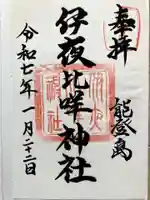 奉拝
能登島
伊夜比咩神社
令和七年一月二十二日